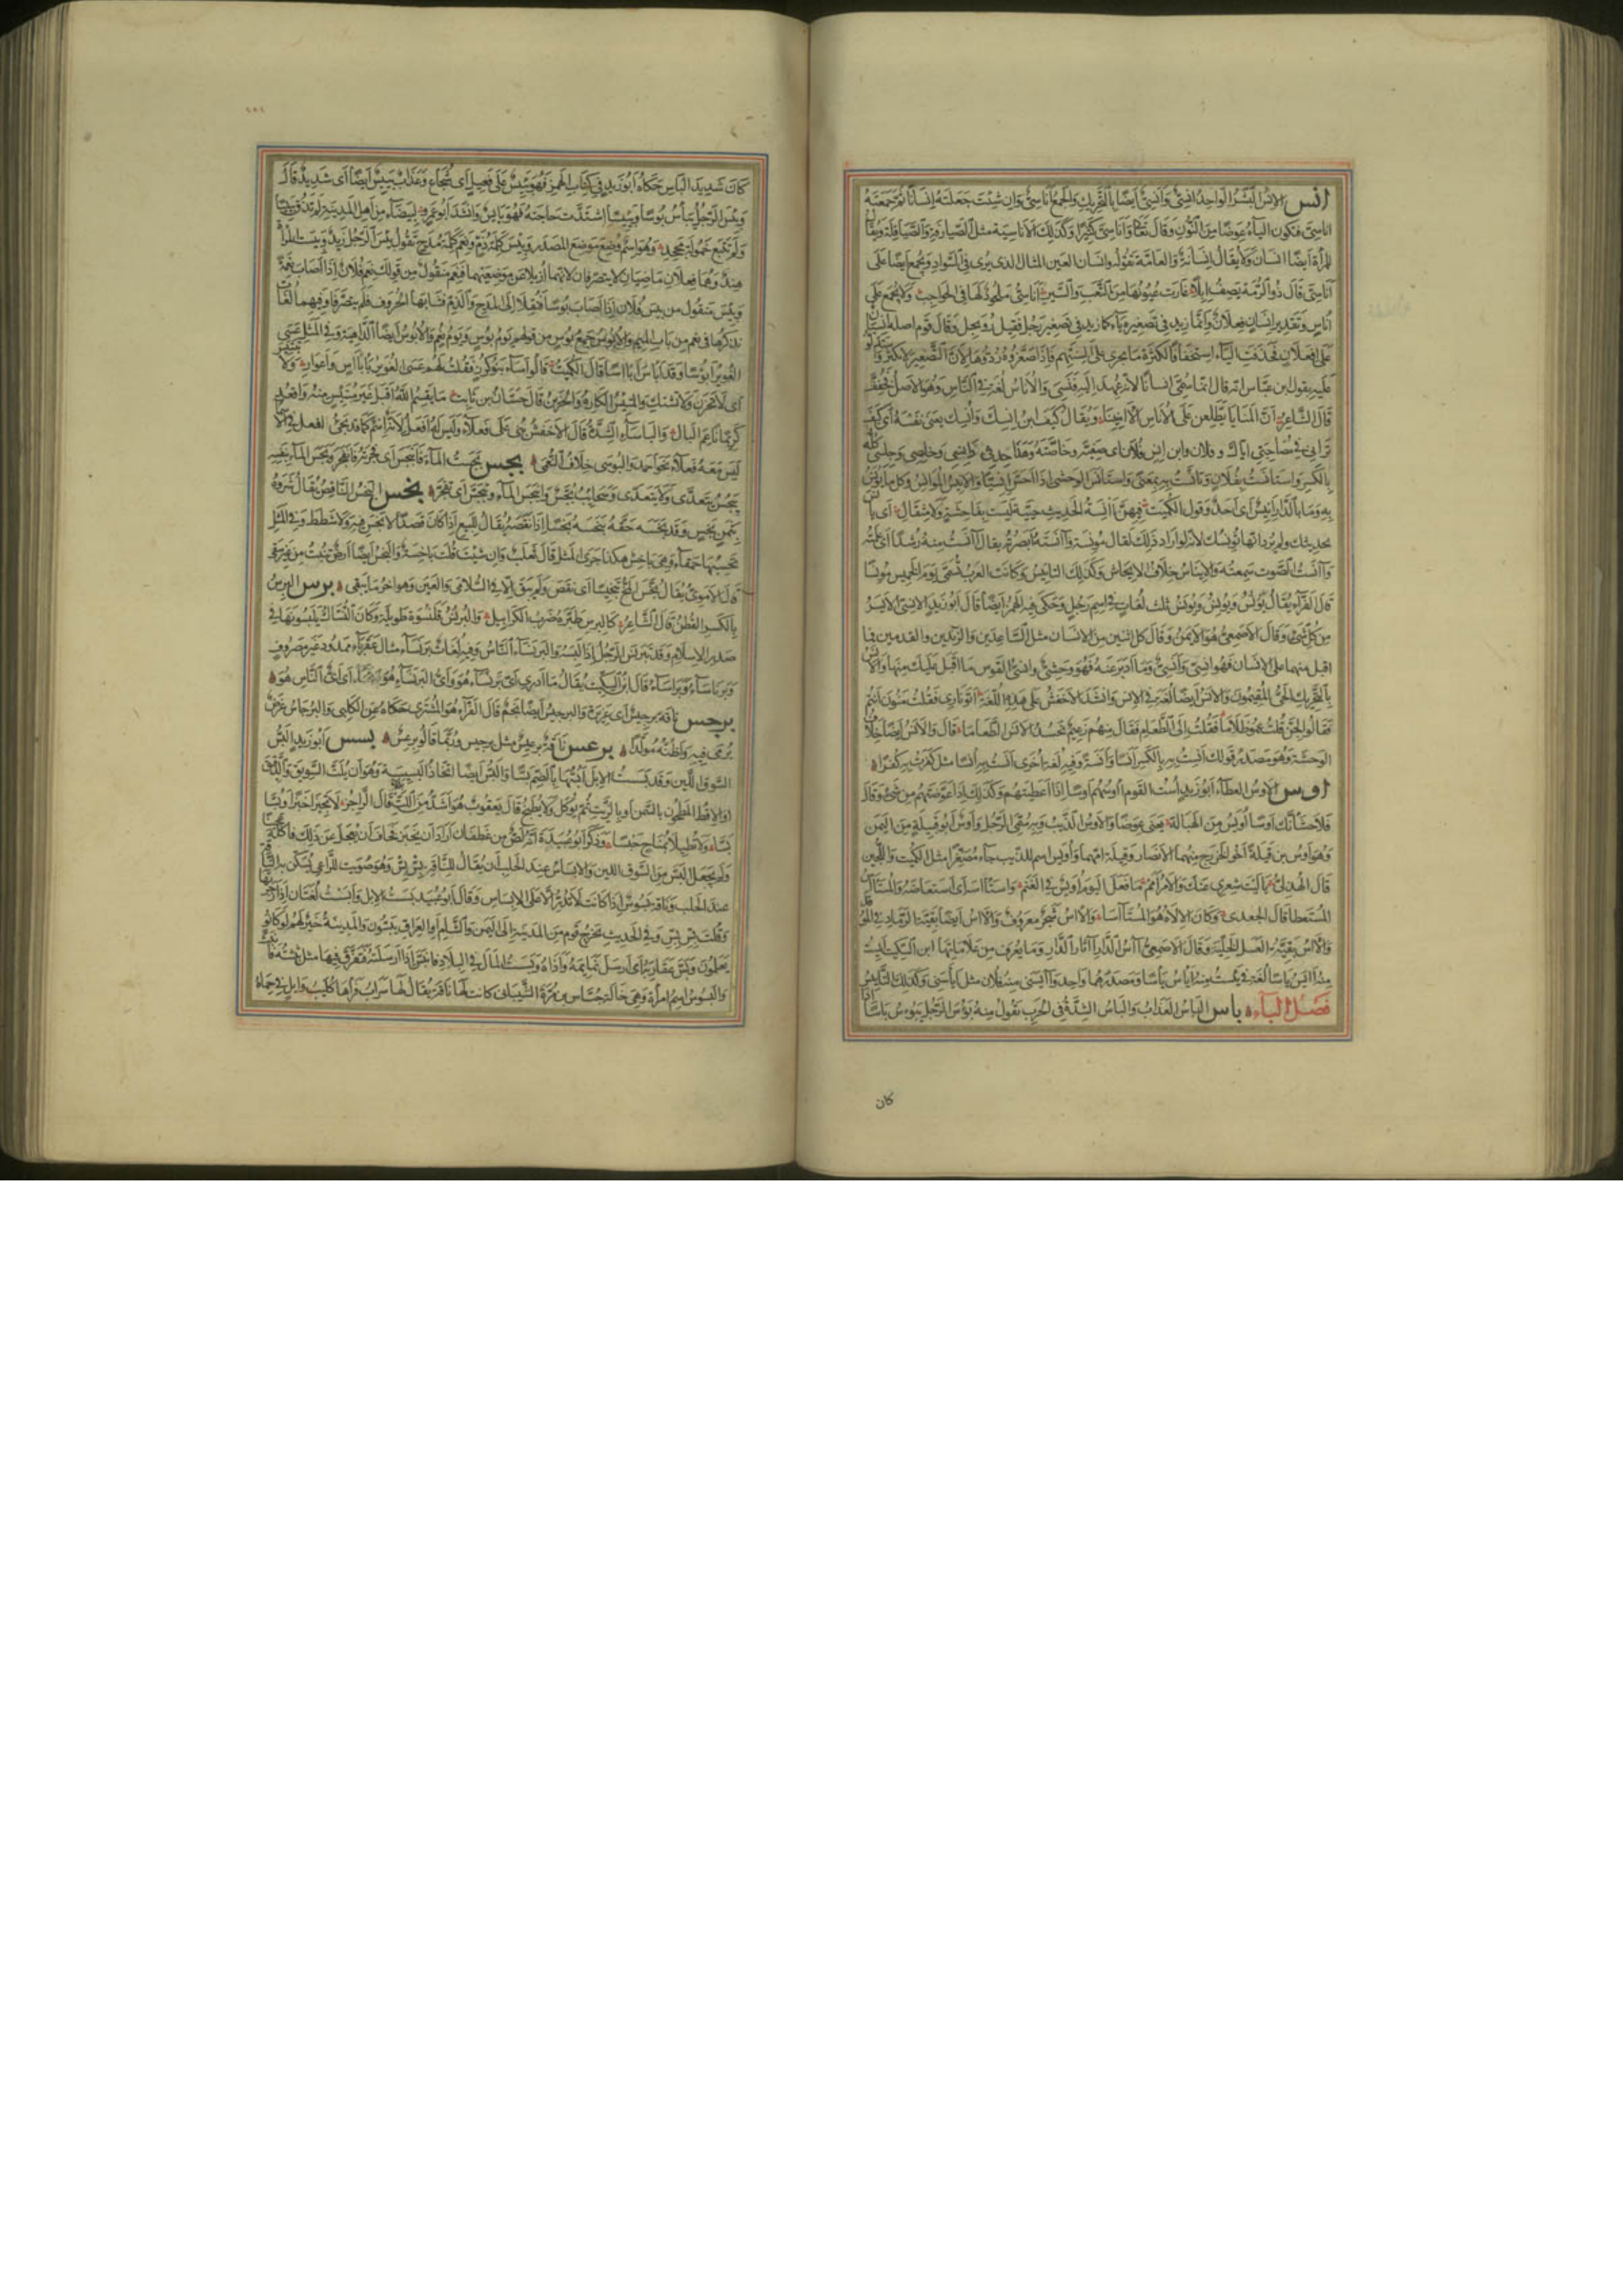 انس الإنْسُ البَشَرُ الواحِدُ اِنسِيٌّ وَاَنَسِيٌّ اَيضًا بِالتَّحْرِيكِ وَالجَمعُ اَناسِيُّ وَاِن شِئتَ جَعَلتَهُ اِنسَانًا ثُمَّ جَمَعتَهُ
اناسِيَّ فتكون الياءُ عِوَضًا مِنَ النُّونِ وَقَالَ تَعَالَى وَاَنَاسِيَّ كَثِيرًا وَكَذلِكَ الاَنَاسِيَة مثل الصَيارِفةِ وَالصَّيَاقِلَةِ وَيُقَالُ
لِلمَرأةِ اَيضًا انسَان وَلَا يُقَالُ اِنسَانَةٌ وَالعَامَّة تَقُولُه وَانسَان العَين المثال الذى يُرى فى السَّوادِ وَيُجمَع اَيضًا عَلَى
اَنَاسِىَّ قَالَ ذُو الرُّمَّة يَصِفُ اِبِلًا غَارَت عُيُونُهَا مِنَ التَّعَبِ وَالسَّيرِ اَنَاسِىُّ مَلحُودٌ لَهَا فى الحَوَاجِبِ وَلَا يُجمَع عَلَى
اُنَاسٍ وَتَقدِيرِ اِنسَانٍ فِعلَانٌ وَاِنَّمَا زِيدَ فِى تَصغِيرِهِ يَاءٌ كما زِيدَ فِى تَصغِيرِ رَجُلٍ فَقِيلَ رُوَيجِل وَقَالَ قَوم اصله اِنسِيَانٌ
عَلَى اِفعِلَانٍ فَحُذِفَتِ اليَاءُ اِستِخفَافًا لِكَثرَةِ مَا يَجرِى عَلى اَلسِنَتِهِم فَاِذَا صَغَّرُوهُ رَدُّوهَا لِاَنَّ التَّصغِيرَ لَا يُكَثَّرُ وَاستَدَلُّوا
عَلَيهِ بِقَولِ ابنِ عَبَّاس انه قال انما سُمِّىَ اِنسانًا لانه عُهِدَ اِلَيهِ فَنَسِىَ وَالأُنَاسُ لُغَة فى النَّاسِ وَهُوَ الاَصلُ فَخُفِّفَ
قَالَ الشَّاعِرُ اَنَّ المَنَايَا يَطَّلِعنَ عَلَى الاُنَاسِ الآمِنِينَا وَيُقَالُ كَيفَ ابنُ اِنسِكَ وَاُنسِكَ يَعنِى نَفسَهُ اَى كَيفَ
تَرَانِى فى مُصَاحَبَتِى اِيَّاكَ وفلان وابن اِنسِ فُلَانٍ اى صَفِيُّه وَخَاصَّتُه وَهَذَا حِدثِى وَاِنسِى وَخِلصِى وَجِلسِى كُلُّه
بِالكَسرِ وَاستَانَستُ بِفُلَانٍ وَتَاَنَّستُ بِهِ بِمَعنًى وَاستَانَسَ الوَحشِىُّ اِذَا اَحَسَّ اِنسِيًّا وَالاَنِيسُ المُوَانِسُ وَكُل مَا يُؤنَسُ
بِهِ وَمَا بِالدَّارِ اَنِيسٌ اى اَحَدٌ وَقَول الكُمَيت فِيهِنَّ آنِسَةُ الحَدِيثِ حَيِيَّة لَيسَت بِفَاحِشَةٍ وَلَا مِتفَالِ اَى تَأنَسُ
بحديثك ولم يُرِد انها تُؤنِسُكَ لانه لو اراد ذلِكَ لقال مُونِسَة وَآنَستُهُ اَبصَرتُهُ يقال آنَستُ مِنهُ رُشدًا اَى عَلِمتُه
وَآنَستُ الصَّوت سَمِعتُه وَالاِينَاسُ خِلَافُ الاِيحَاشِ وَكَذلِكَ التأنِيسُ وَكَانَت العَرَبُ تُسَمِّى يَومَ الخَمِيس مُونِسًا
قَالَ الفَرَّاءُ يُقَالُ يُونُسُ وَيُونِسُ وَيُونَسُ ثلث لُغَاتٍ فى اِسمِ رَجُلٍ وَحُكِىَ فيه الهَمزُ اَيضًا قَالَ اَبُوزَيدٍ الاِنسِىُّ الاَيسَرُ
مِن كُلِّ شَىءٍ وَقَالَ الاَصمَعِىُّ هُوَ الاَيمَنُ وَقَالَ كل اثنين مِنَ الاِنسَانِ مثل السَّاعِدَينِ وَالزَّندَينِ والقدمين فما
اقبل منهما على الانسان فَهُوَ انسِىٌّ وَمَا اَدبَرَ عَنهُ فَهُوَ وَحشِىٌّ وانسِىُّ القَوس مَا اَقبَلَ عَلَيكَ مِنهَا وَالاَنَسُ
بِالتَّحرِيكِ الحَىُّ المُقِيمُونَ وَالاَنَسُ اَيضًا لُغَة فى الاِنسِ وَانشَدَ الاَخفَشُ على هذِهِ اللُّغَةِ اَتَوا نَارِى فَقُلتُ مَنُونَ اَنتُم
فَقَالُوا الجِنُّ قُلتُ عِمُوا ظَلَامَا فَقُلتُ اِلَى الطَّعَامِ فَقَالَ مِنهُم زَعِيمٌ نَحسُدُ الاَنَسَ الطَّعَامَا قَالَ وَالاَنَسُ اَيضًا خِلَافُ
الوَحشَةِ وَهُوَ مَصدَرُ قَولِكَ اَنِستُ بِهِ بِالكَسرِ اَنَسًا وَاَنَسَةً وَفِيهِ لُغَة اُخرَى اَنَستُ بِهِ اُنسًا مثل كَفَرتُ بِهِ كُفرًا
اوس الاَوسُ العطآءُ اَبُوزَيدٍ اُستُ القَومَ اَؤُوسُهُم اَوسًا اِذَا اَعطَيتَهُم وَكَذلِكَ اِذَا عَوَّضتَهُم مِن شَىءٍ وَقَالَ
فَلَاَحشَأَنَّكَ مِشقَصًا اَوسًا اُوَيسُ مِنَ الهَبَالَه يَعنِى عِوَضًا وَالاَوسُ الذِّئبُ وَبِهِ سُمِّىَ الرَّجُلُ وَاَوسٌ اَبُو قَبِيلَةٍ مِنَ اليَمَن
وَهُوَ اَوسُ بن قَيلَةَ اَخُو الخَزرَجِ مِنهُمَا الاَنصَار وَقَيلَة امّهما وَاُوَيس اسم للذئب جَاءَ مُصَغَّرًا مثل الكُمَيت وَاللُّجَين
قَالَ الهُذَلِىُّ يَالَيتَ شِعرِى عَنكَ وَالاَمرُ اَمَم مَا فَعَلَ اليَومَ اُوَيسٌ فِى الغَنَم وَاستَآسَه اَى اِستَعَاضَهُ وَالمُستَآسُ
المُستَعطَا قَالَ الجعدى وَكَانَ الاِلَاهُ هُوَ المُستَآسَا وَالآسُ شَجَرٌ مَعرُوفٌ وَالآسُ اَيضًا بَقِيَّة الرَّمَادِ فِى المَوقِد
وَالآسُ بَقِيَّة العَسَل فى الخَلِيَّةِ وَقَالَ الاَصمَعِىُّ آسُ الدَّارِ آثَارُ الدَّارِ وَمَا يُعرَفُ مِن عَلَامَاتِهَا ابن السِّكِّيتِ اَيِستُ
مِنهُ آيَسُ يَأسًا لُغَة فِى يَئِستُ مِنهُ اَيأَسُ يَأسًا وَمَصدَرُهُمَا وَاحِد وَآيَسَنِى مِنهُ فُلَان مثل اَيأَسَنِى وَكَذلِكَ التَّأيِيسُ
فَصلُ البَآءِ بأس البَأسُ العَذَابُ وَالبَأسُ الشِدَّةُ فِى الحَربِ تَقُولُ مِنهُ بَؤُسَ الرَّجُلُ يَبؤُسُ بَأسًا اِذَا
كان
كَانَ شَدِيدَ البَأسِ حَكَاهُ اَبُوزَيدٍ فِى كِتَابِ الهَمزِ فَهُوَ بَئِيسٌ عَلَى فَعِيلٍ اى شُجَاع وَعَذَابٌ بَئِيسٌ اَيضًا اَى شَدِيدٌ قَالَ
وَبَئِسَ الرَّجُلُ يَبأَسُ بُؤسًا وَبَئِيسًا اِشتَدَّت حَاجَتُهُ فَهُوَ بَائِسٌ وَاَنشَدَ اَبُوعَمرٍو لِبَيضَاءَ مِن اَهلِ المَدِينَةِ لَم تَذُق بَئِيسًا
وَلَم تَتبَع حَمُولَةَ مُجحِدِ وَهُوَ اِسمٌ وُضِعَ مَوضِعَ المَصدَرِ وَبِئسَ كَلِمَةُ ذَمٍّ وَنِعمَ كَلِمَةُ مَدحٍ تَقُولُ بِئسَ الرَّجُلُ زَيدٌ وَبِئسَتِ المَرأَةُ
هِندٌ وَهُمَا فِعلَانِ مَاضِيَانِ لَا يتصرفان لانهما اُزِيلَا عَن مَوضِعِهِمَا فَنِعمَ مَنقُولٌ مِن قَولِكَ نَعِمَ فُلَانٌ اِذَا اَصَابَ نِعمَةً
وَبِئسَ مَنقُول مِن بَئِسَ فُلَانٌ اِذَا اَصَابَ بُؤسًا فَنُقِلَا اِلَى المَدحِ وَالذَّمِّ فشَابَهَا الحُرُوف فَلَم يَتَصَرَّفَا وَفِيهِمَا لُغَات
نذكرها فى نعم من باب الميم وَالاَبؤُسُ جَمعُ بُؤسٍ من قولهم يَومُ بُؤسٍ وَيَومُ نُعمٍ وَالاَبؤُسُ اَيضًا الدَّاهِيَة وَفِى المَثَلِ عَسَى
الغُوَيرُ اَبؤُسًا وَقَد اَبأَسَ اِبآسًا قَالَ الكُمَيت قَالُوا اَسَآءَ بَنُو كُرزٍ فَقُلتُ لَهُم عَسَى الغُوَيرُ بِاِبآسٍ وَاِغوَارِ وَلَا تَبتَئِس
اَى لَا تَحزَن وَلَا تشتَكِ وَالمُبتَئِسُ الكَارِهُ وَالحَزِينُ قَالَ حَسَّانُ بن ثَابِت مَا يَقسِمُ اللهُ اَقبَل غَيرَ مُبتَئِسٍ مِنهُ وَاَقعُد
كَرِيمًا نَاعِمَ البَالِ وَالبَأسَآءُ الشِّدَّةُ قَالَ الاَخفَشُ بُنِىَ عَلَى فَعلَاءَ وَلَيسَ لَهُ اَفعَلُ لِاَنَّهُ اِسم كَمَا قَد يَجِىءُ افعل فى الاسماء
لَيسَ مَعَهُ فَعلَاءُ نَحو اَحمَدَ وَالبُؤسَى خِلَافُ النُّعمَى بجس بَجَستُ المَآءَ فَانبَجَسَ اَى فَجَرتُهُ فَانفَجَرَ وَبَجَسَ المَآءُ بِنَفسِهِ
يَبجُسُ يَتَعَدَّى وَلَا يَتَعَدَّى وَسَحَائِبُ بُجَّسٌ وَانبَجَسَ المَآءُ وَتَبَجَّسَ اَى تَفَجَّرَ بخس البَخسُ النَّاقِصُ يُقَالُ شَرَوهُ
بِثَمَنٍ بَخسٍ وَقَد بَخَسَهُ حَقَّهُ يَبخَسُهُ بَخسًا اِذَا نَقَصَهُ يُقَالُ لِلبَيعِ اِذَا كَانَ قَصدًا لَا بَخسَ فِيهِ وَلَا شَطَط وَفِى المَثَلِ
تَحسِبُهَا حَمقَآءَ وَهِىَ بَاخِسٌ هكذا جَرَى المَثَلُ قَالَ ثَعلَبٌ وَاِن شِئتَ قُلتَ بَاخِسَةٌ وَالبَخسُ اَيضًا اَرضٌ تُنبِتُ مِن غَيرِ سَقىٍ
قَالَ الاُمَوِىُّ يُقَالُ بَخَّسَ المُخُّ تَبخِيسًا اَى نَقَصَ وَلَم يَبقَ اِلَّا فى السُّلَامَى وَالعَينِ وَهو اخر مَا يَبقَى برس البِرسُ
بِالكَسرِ القُطنُ قَالَ الشَّاعِرُ كَالبِرسِ طَيَّرَهُ ضَربُ الكَرَابِيلِ وَالبُرنُسُ قَلَنسُوَة طَوِيلَة وَكَانَ النُّسَّاكُ يَلبَسُونَهَا فِى
صَدرِ الاِسلَامِ وَقَد تَبَرنَسَ الرَّجُلُ اِذَا لَبِسَهُ وَالبَرنسَاءُ النَّاسُ وَفِيهِ لُغَاتٌ بَرنسَآءُ مثَال عَقرَبَاءَ مَمدُود غَيرُ مَصرُوفٍ
وَبَرنَاسَآءُ وَبَرَاسَآءُ قَالَ ابنُ السِّكِّيتِ يُقَالُ مَا اَدرِى اَىُّ بَرنسَآءَ هُوَ وَاَىُّ البَرنسَآءِ هُوَ اَى اَىُّ النَّاسِ هُوَ
برجس نَاقَة بِرجِيسٌ اَى غَزِيرَةٌ وَالبِرجِيسُ اَيضًا نَجمٌ قَالَ الفَرَّآءُ هُوَ المُشتَرِى حَكَاهُ عَنِ الكَلبِىِّ وَالبُرجَاسُ غَرَضٌ
يُرمَى فِيهِ وَاَظُنُّهُ مُوَلَّدًا برعس نَاقَةٌ بِرعِسٌ مثل بِرجِيس وَرُبَّمَا قَالُوا بِرعِيسٌ بسس اَبُوزَيدٍ البَسُّ
السَّوقُ اللَّيِّن وَقَد بَسَستُ الاِبِلَ اَبُسُّهَا بِالضَّمِّ بَسًّا وَالبَسُّ اَيضًا اتِّخَاذُ البَسِيسَةِ وَهُوَ اَن يُلَتَّ السَّوِيقُ وَالدَّقِيقُ
اوالاقِطُ المَطحُون بالسَّمنِ اَو بِالزَّيتِ ثُمَّ يُؤكَل وَلَا يُطبَخُ قَالَ يَعقُوبُ هُوَ اَشَدُّ مِنَ اللَّتِّ بَلَلًا قَالَ الرَّاجِزُ لَا تَخبِزَا خَبزًا وَبُسَّا
بَسَّا وَلَا تُطِيلَا بِمُنَاخٍ حَبسًا وَذَكَرَ اَبُوعُبَيدَةَ اَنَّهُ لِصٌّ مِن غَطَفَانَ اَرَادَ اَن يَخبِزَ فَخَافَ اَن يُعجَلَ عَن ذلِكَ فَاَكَلَهُ عَجِينًا
وَلَم يَجعَل البَسَّ مِنَ السَّوقِ اللين وَالابسَاسُ عِندَ الحَلبِ اَن يُقَالَ لِلنَّاقَةِ بِس بِس وَهُوَ صُوَيت لِلرَّاعِى يُسَكِّن بِهِ النَّاقَةَ
عندَ الحَلبِ وَنَاقَة بَسُوسٌ اِذَا كَانَت لَا تَدُرُّ اِلَّا عَلَى الابسَاسِ وَقَالَ اَبُوعُبَيد بَسَستُ الاِبِلَ وَاَبسَستُ لُغَتَان اِذَا زَجَرتَهَا
وَقُلتَ بِس بِس وَفِى الحَدِيثِ يَخرُجُ قَوم مِنَ المَدِينَةِ اِلَى اليَمَنِ وَالشَّامِ اَو العِرَاقِ يَبُسُّون وَالمَدِينَةُ خَيرٌ لَهُم لَو كَانُوا
يَعلَمُونَ وَبَسَّ عَقَارِبَهُ اى اَرسَلَ نَمَائِمَهُ وَاَذَاهُ وَبَسَستُ المَالَ فِى البِلَادِ فَانبَسَّ اِذَا اَرسَلتَهُ فَتَفَرَّقَ فِيهَا مثل بَثَثتُه فَانبَثَّ
وَالبَسُوسُ اسمُ امرَأَة وَهِىَ خَالَة جَسَّاس بن مُرَّةَ الشَّيبَانِى كَانَت لَهَا نَاقَة يُقَالُ لَهَا سَرَاب فَرَآهَا كُلَيب وَائِلٍ فِى حِمَاهُ